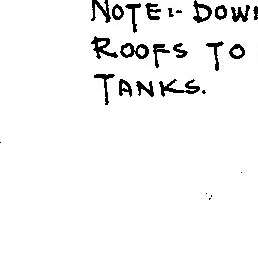 NOTE:- DOW
ROOFS TO
TANKS.